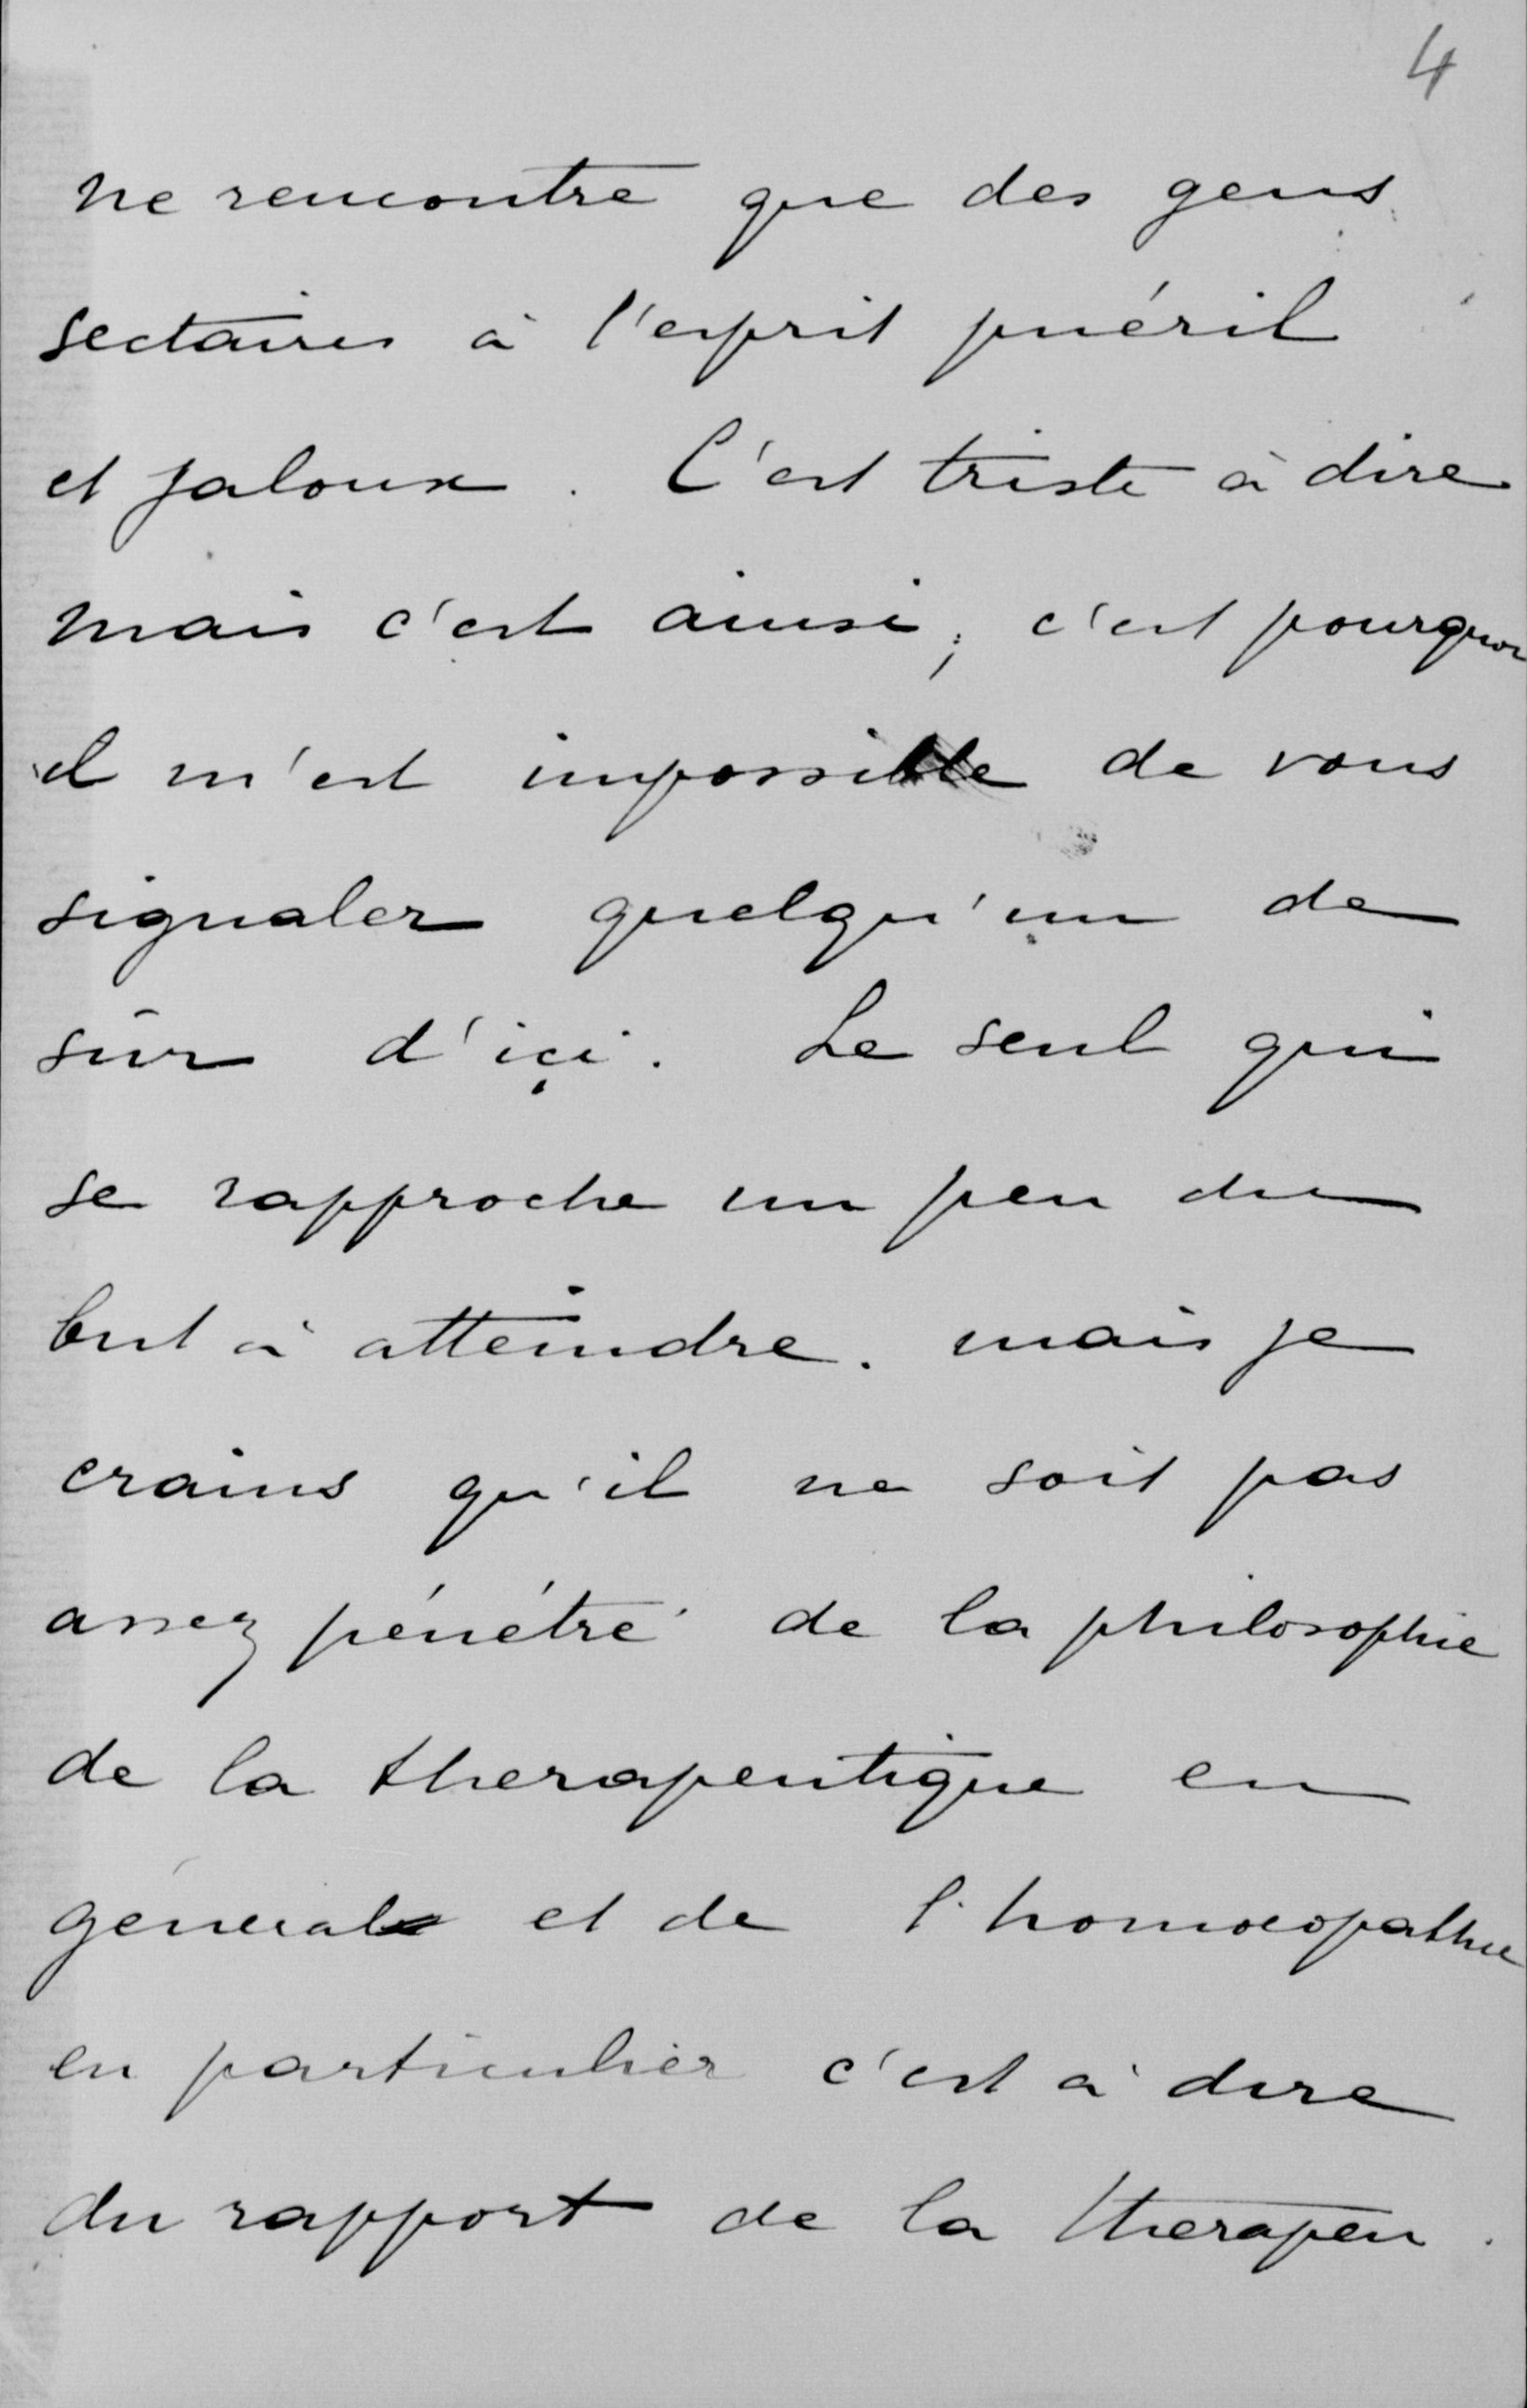 4
ne rencontre que des gens
sectaires à l'esprit puéril
et jaloux. C'est triste à dire
mais c'est ainsi; c'est pourquoi
il m'est impossible de vous
signaler quelqu'un de
sûr d'içi. Le seul qui
se rapproche un peu du
but à atteindre. mais je
crains qu'il ne soit pas
assez pénétré de la philosophie
de la therapeutique en
général et de l'homoeopathie
en particulier c'est à dire
du rapport de la therapeu